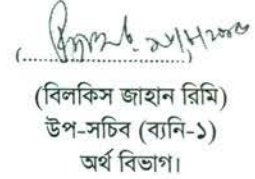 (বিলকিস জাহান রিমি)
উপ-সচিব (ব্যনি-১)
অর্থ বিভাগ।